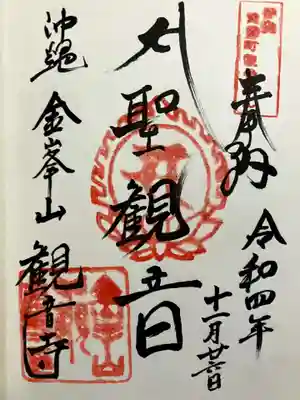 奉拝
令和四年
十一月廿六日
聖観音
沖縄 金峯山 観音寺